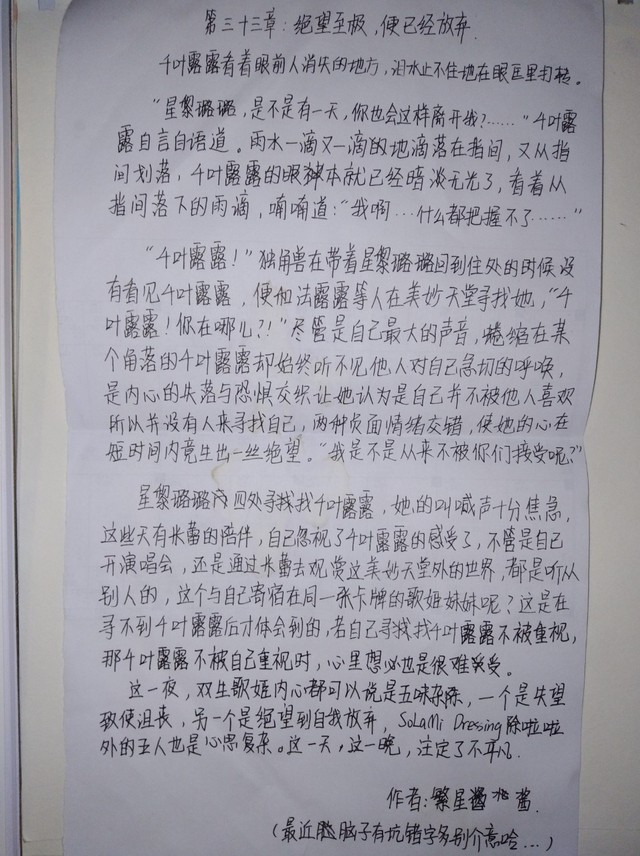 第三十三章：绝望至极，便已经放弃.
千叶露露看着眼前人消失的地方，泪水止不住地在眼匡里打转。
“星黎璐璐，是不是有一天，你也会这样离开我？……”千叶露
露自言自语道。雨水一滴又一滴的地滴落在指间，又从指
间划落，千叶露露的眼神本就已经暗淡无光了，看着从
指间落下的雨滴，喃喃道：“我啊…什么都把握不了……”
“千叶露露！”独角兽在带着星黎璐璐回到住处的时候没
有看见千叶露露，便加法露露等人在美妙天堂寻找她，“千
叶露露！你在哪儿？！”尽管是自己最大的声音，蜷缩在某
个角落的千叶露露却始终听不见他人对自己急切的呼唤，
是内心的失落与恐惧交织让她认为是自己并不被他人喜欢
所以并没有人来寻找自己，两种负面情绪交错，使她的心在
短时间内竟生出一丝绝望。“我是不是从来不被你们接受呢？”
星黎璐璐四处寻找找千叶露露，她的叫喊声十分焦急，
这些天有米蕾的陪伴，自己忽视了千叶露露的感受了，不管是自己
开演唱会，还是通过米蕾去观赏这美妙天堂外的世界，都是听从
别人的，这个与自己寄宿在同一张卡牌的歌姬妹妹呢？这是在
寻不到千叶露露后才体会到的，若自己寻找找千叶露露不被重视，
那千叶露露不被自己重视时，心里想必也是很难受。
这一夜，双生歌姬内心都可以说是五味杂陈，一个是失望
致使沮丧，另一个是绝望到自我放弃，SoLaMi Dressing除啦啦
外的五人也是心思复杂。这一天，这一晚，注定了不平凡.
作者：繁星酱
（最近脑子有坑错字多别介意哈…）